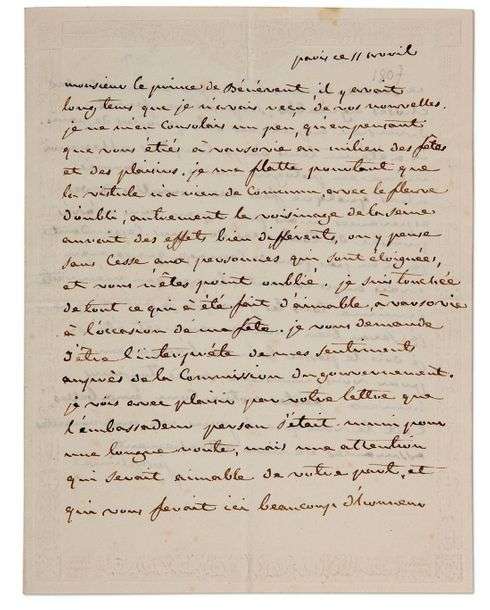 paris ce 11 avril
monsieur le prince de Bénévent il y avait
longtems que je n'avais reçu de vos nouvelles.
je ne m'en consolais un peu, qu'en pensant
que vous étiés à varsovie au milieu des fêtes
et des plaisirs. je me flatte pourtant que
la vistule n'a rien de commun, avec le fleuve
d'oubli; autrement le voisinage de la seine
auroit des effets bien différents, on y pense
sans cesse aux personnes qui sont éloignées,
et vous n'êtes point oublié. je suis touchée
de tout ce qui a été fait d'aimable, à varsovie
à l'occasion de ma fête. je vous demande
d'être l'interpréte de mes sentiments
auprès de la commission du gouvernement.
je vois avec plaisir par votre lettre que
l'embassadeur persan s'était muni pour
une longue route, mais une attention
qui serait aimable de votre part, et
qui vous ferait ici beaucoup d'honneur